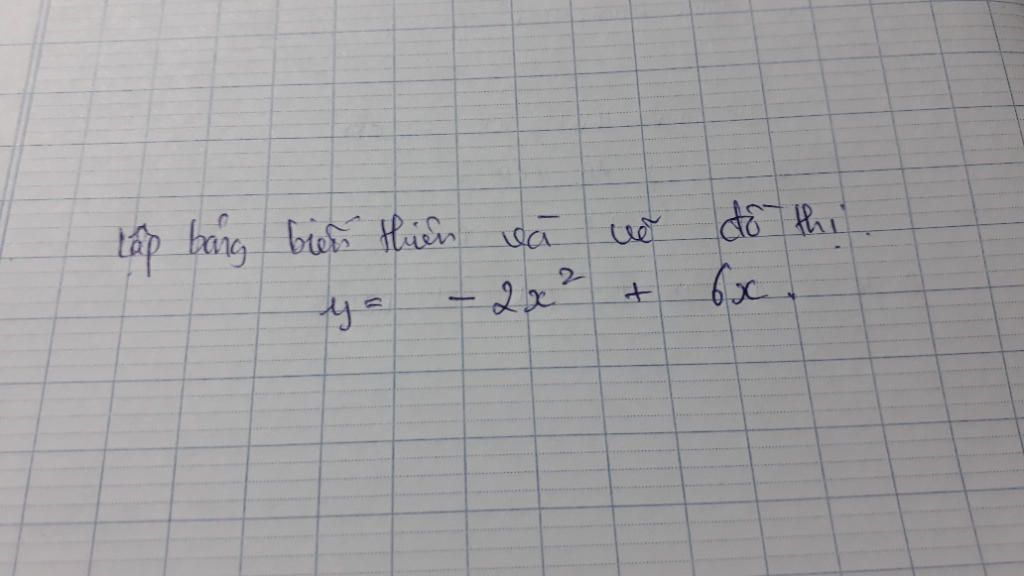 Lập bảng biến thiên và vẽ đồ thị.
y = - 2x² + 6x.